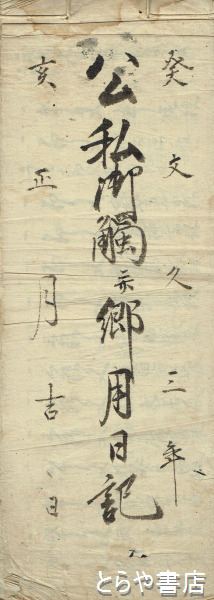 癸文久三年
公私御觸并郷用日記
亥正月吉日
とらや書店